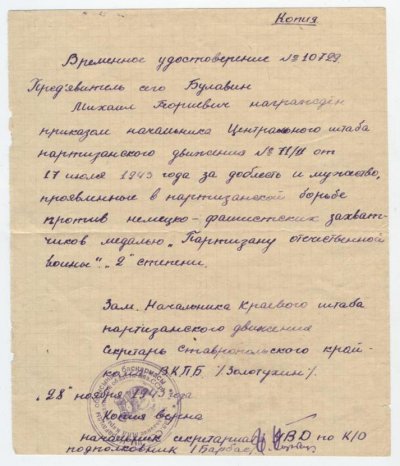 Копия
Временное удостоверение № 10729
Пред'явитель сего Булавин
Михаил награжден
приказом начальника Центрального штаба
партизанского движения № от
17 июля 1943 года за доблесть и мужество,
проявленные в партизанской борьбе
против немецко-фашистских захват-
чиков медалью „Партизану отечественной
войны". „2" степени.
Зам. Начальника Краевого штаба
партизанского движения
Секретарь Ставропольского край-
ВКПБ /Золотухин/.
„28" ноября 1943 года
Копия верна
начальник секретариата по К/О
подполковник /Барбас